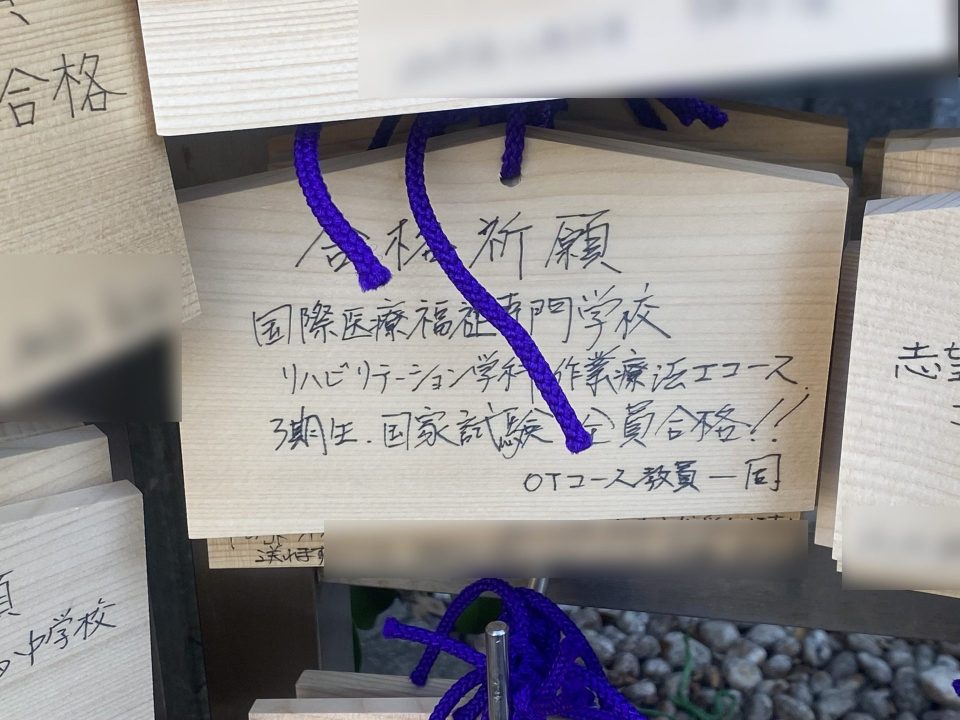 合格
合格祈願
国際医療福祉専門学校
リハビリテーション学科作業療法エコース
3期生.国家試験 全員合格!!
OTコース教員一同
送れます
願
中学校
志望